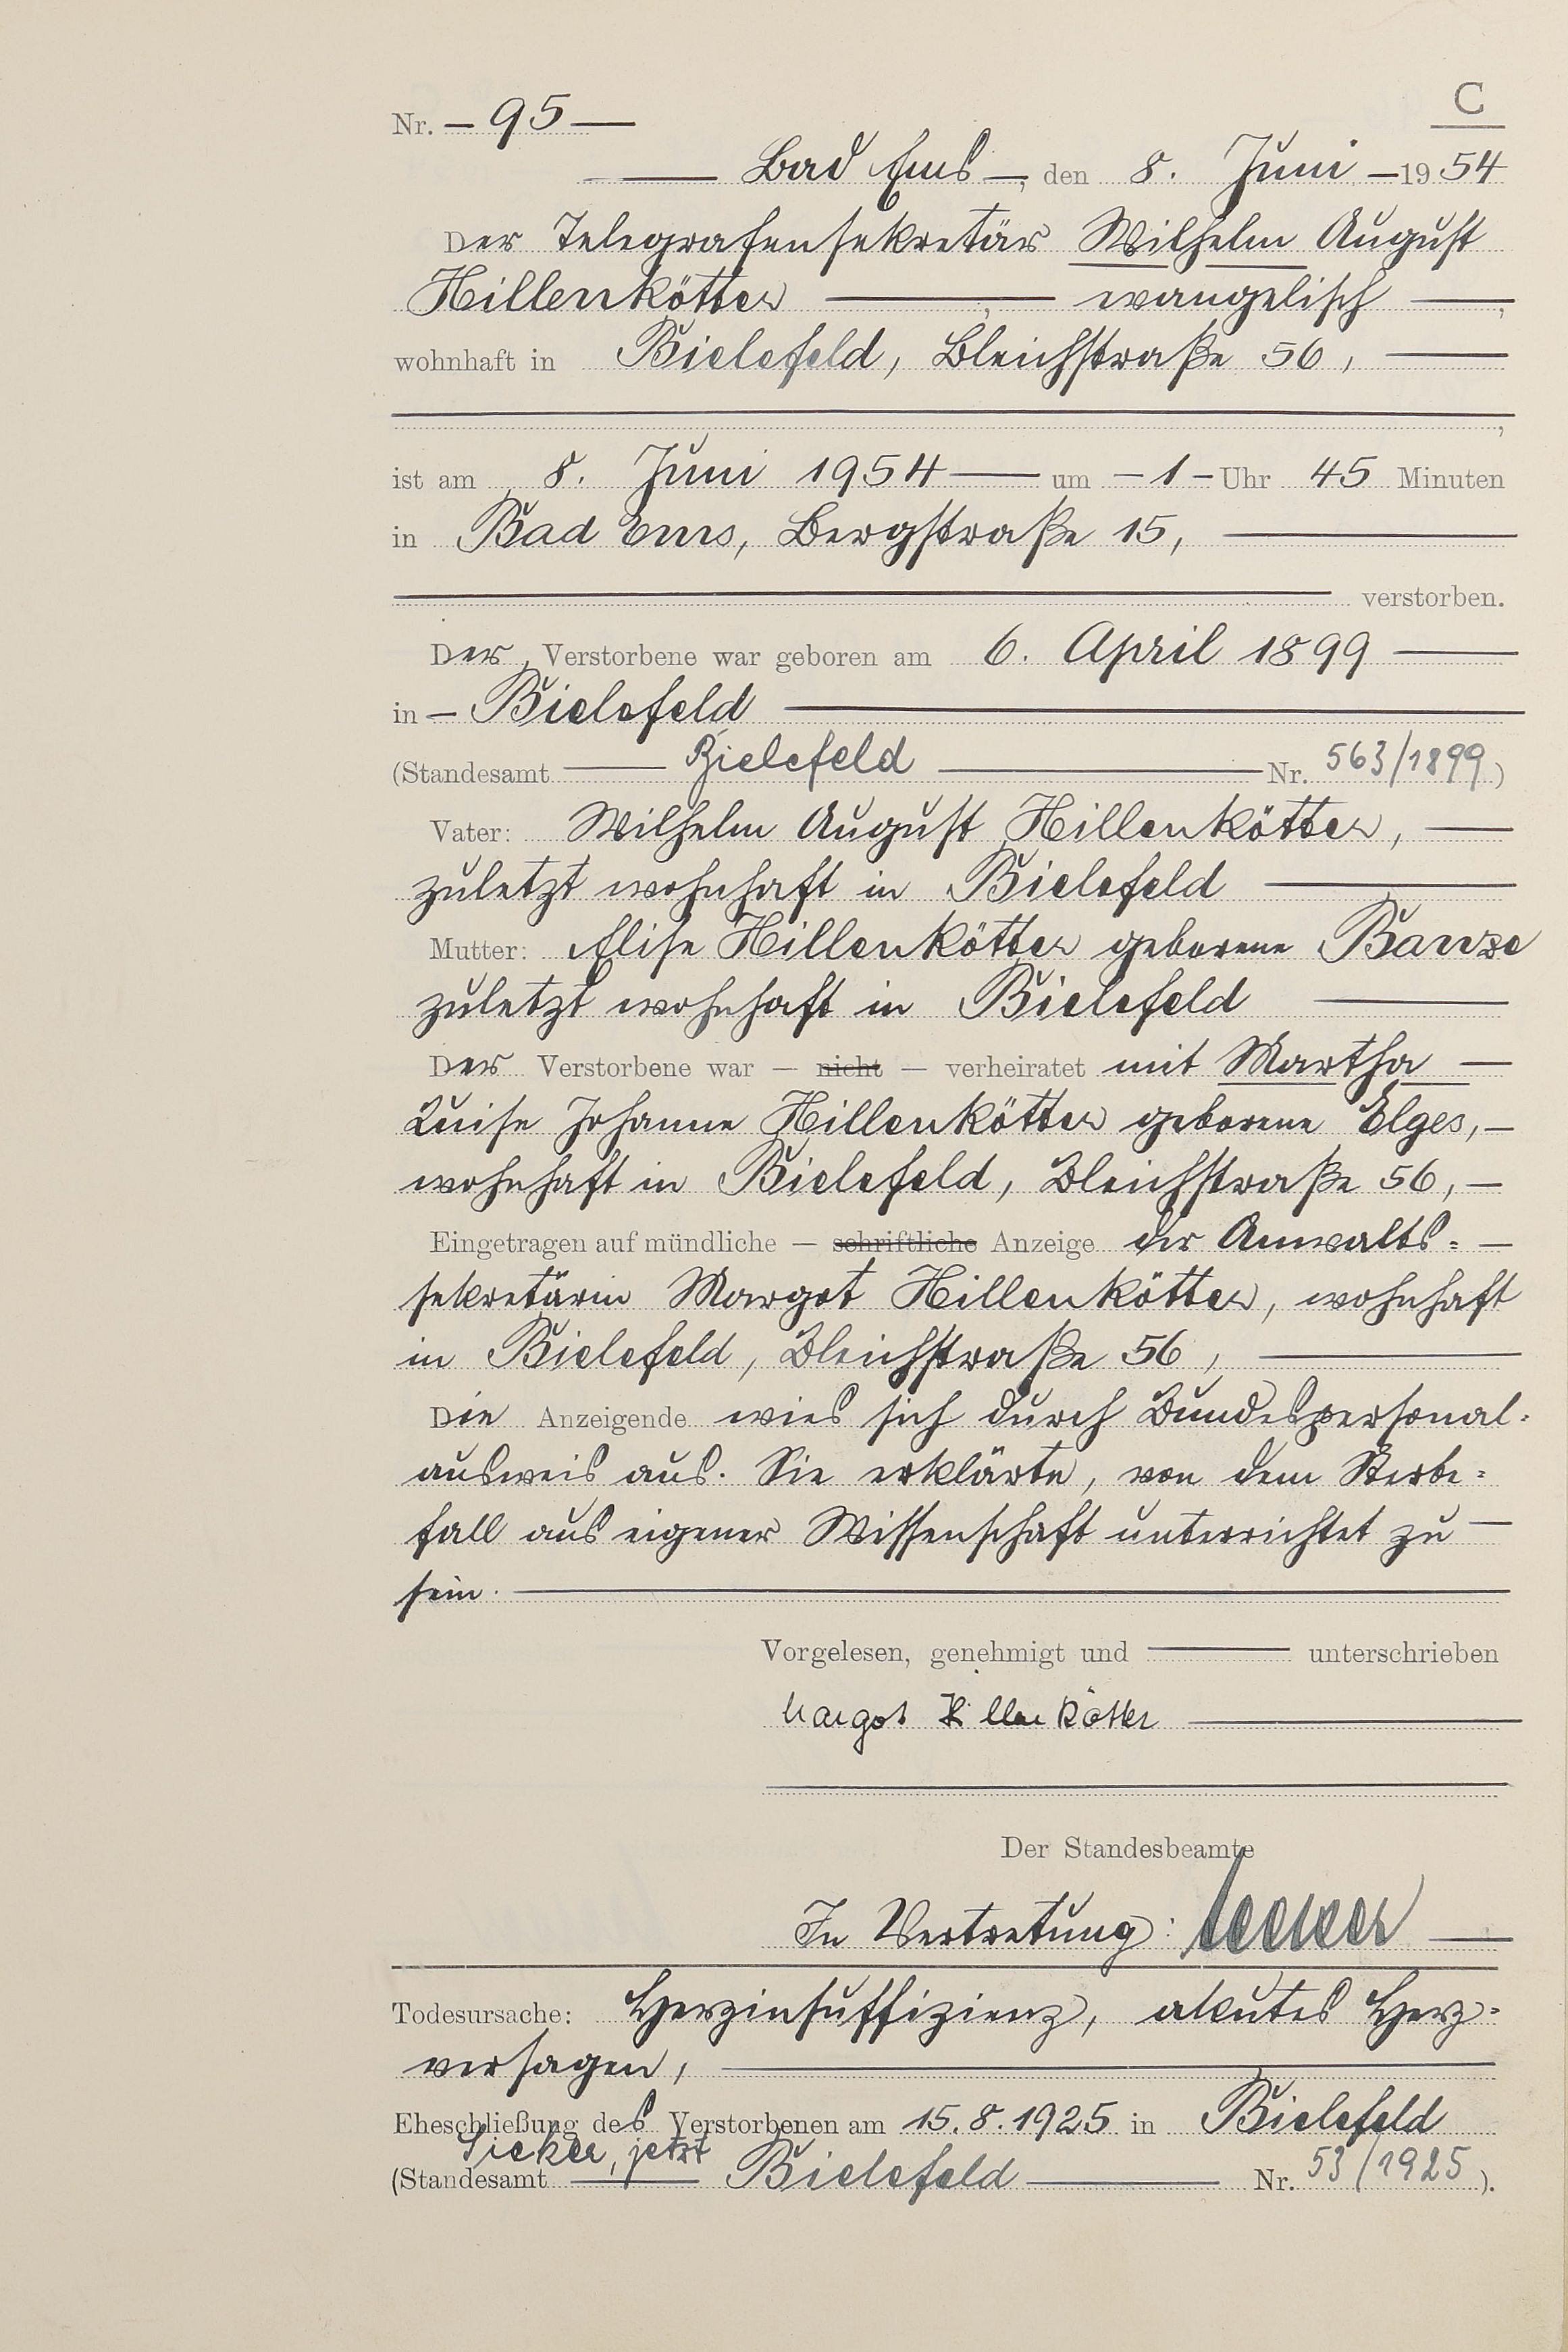 C
Nr. – 95 –
Bad Ems –, den 8. Juni – 1954
Der Telegrafensekretär Wilhelm August
Hillenkötter –, evangelisch –,
wohnhaft in Bielefeld, Bleichstraße 56, –
,
ist am 8. Juni 1954 – um – 1 – Uhr 45 Minuten
in Bad Ems, Bergstraße 15, –
verstorben.
Der Verstorbene war geboren am 6. April 1899 –
in – Bielefeld –
(Standesamt – Bielefeld – Nr. 563/1899)
Vater: Wilhelm August Hillenkötter, –
zuletzt wohnhaft in Bielefeld –
Mutter: Elise Hillenkötter geborene Banze
zuletzt wohnhaft in Bielefeld –
Der Verstorbene war – nicht – verheiratet mit Martha –
Luise Johanne Hillenkötter geborene Elges, –
wohnhaft in Bielefeld, Bleichstraße 56, –
Eingetragen auf mündliche – schriftliche Anzeige der Anwalts= –
sekretärin Margot Hillenkötter, wohnhaft
in Bielefeld, Bleichstraße 56, –
Die Anzeigende wies sich durch Bundespersonal=
ausweis aus. Sie erklärte, von dem Sterbe=
fall aus eigener Wissenschaft unterrichtet zu –
sein. –
Vorgelesen, genehmigt und – unterschrieben
Margot Hillenkötter –
Der Standesbeamte
In Vertretung: –
Todesursache: Herzinsuffizienz, akutes Herz=
versagen, –
Eheschließung des Verstorbenen am 15.8.1925 in Bielefeld
Sieker, jetzt
(Standesamt – Bielefeld – Nr. 53/1925).